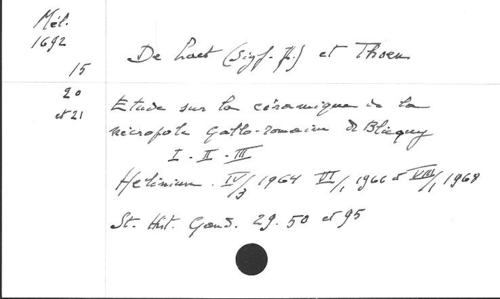 Mél.
1692
15
20
et 21
De Laet (Sigf. J.) et Thoen
Etude sur la céramique de la
nécropole Gallo-romaine de Blicquy
I - II - III
Helinium. IV/3 1964 VI/1, 1966 et VIII/1, 1968
St. Hist. Gand. 29. 50 et 95